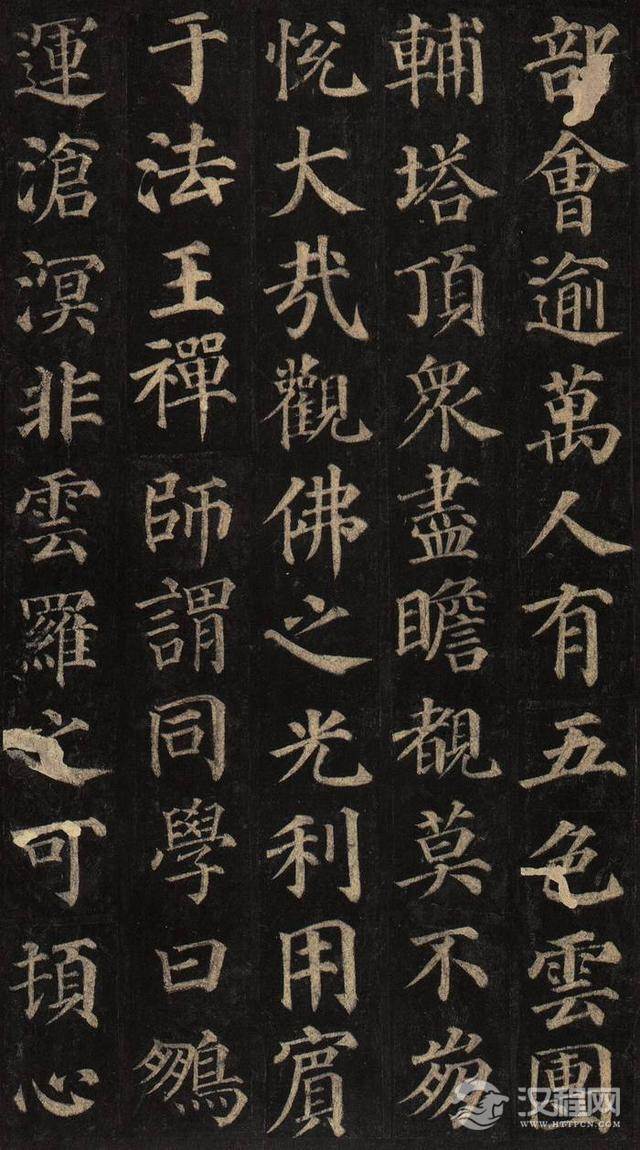 部會逾萬人有五色雲團
輔塔頂眾盡瞻覩莫不崩
悅大哉觀佛之光利用賓
于法王禪師謂同學曰鵬
運滄溟非雲羅之可頓心
汉程网
HTTPCN.COM